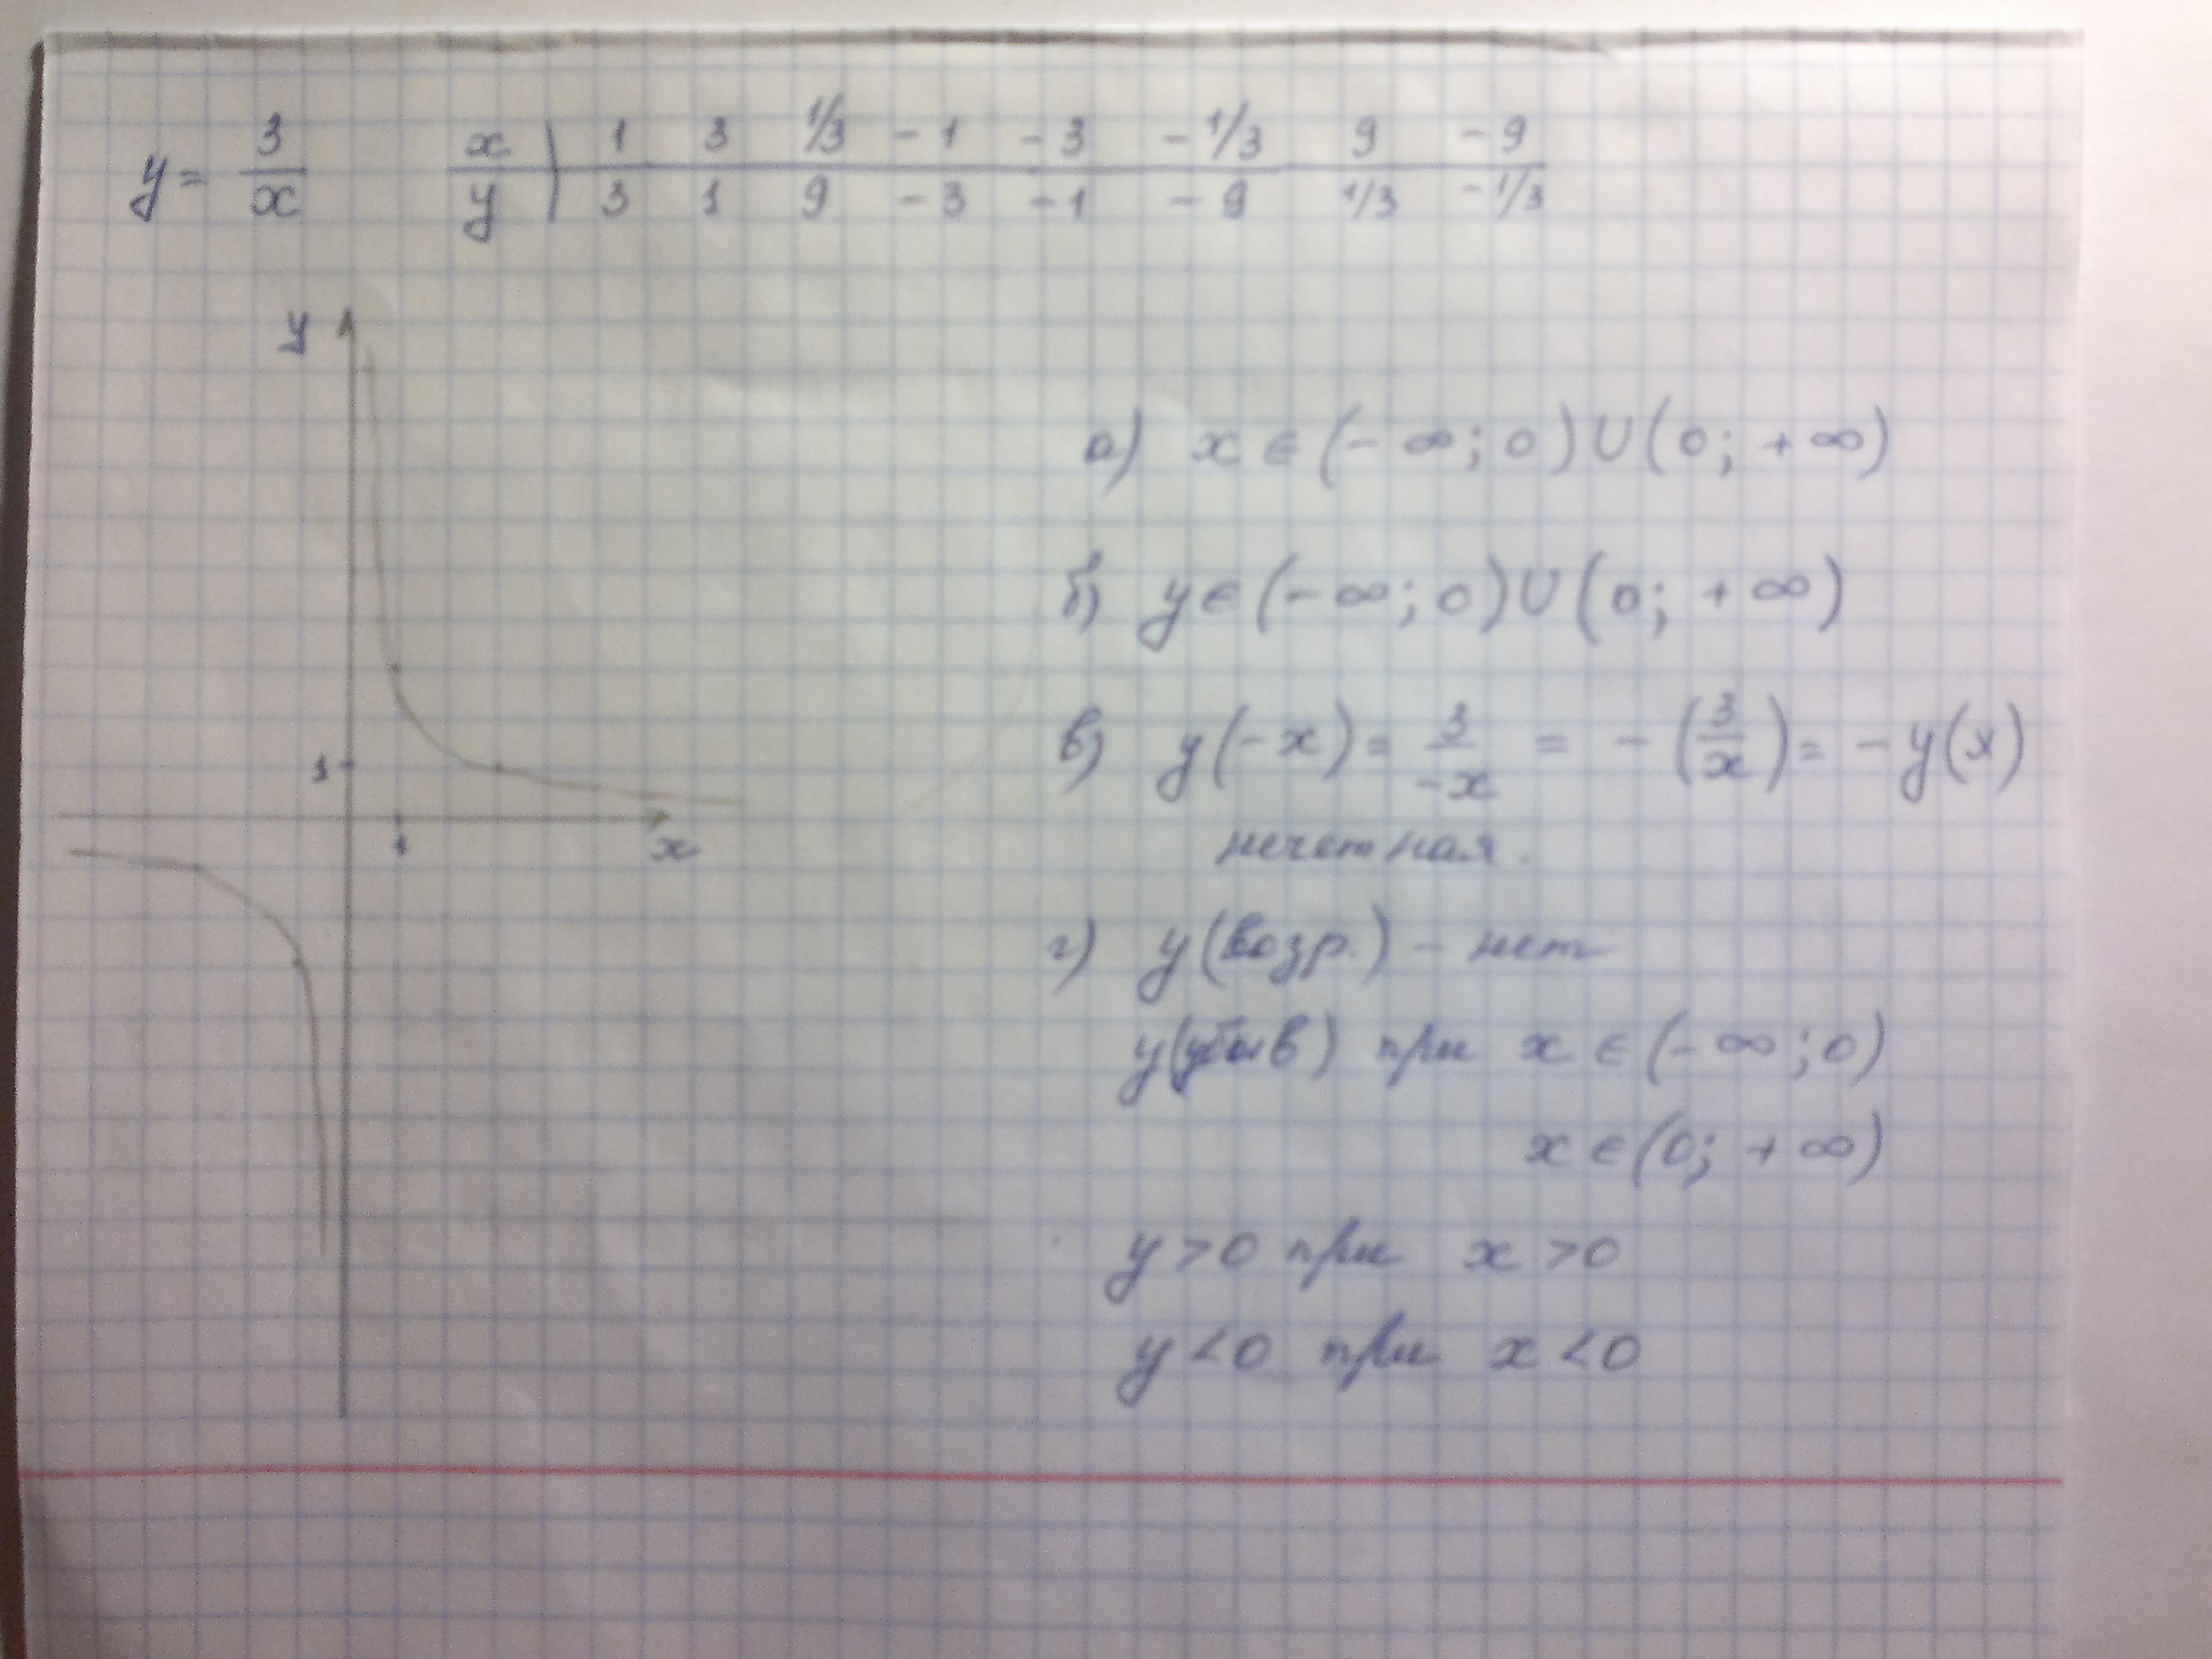 y = 3/x
x | 1 3 1/3 -1 -3 -1/3 9 -9
y | 3 1 9 -3 -1 -9 1/3 -1/3
y
1
1
x
а) x ∈ (-∞; 0) ∪ (0; +∞)
б) y ∈ (-∞; 0) ∪ (0; +∞)
в) y(-x) = 3/-x = -(3/x) = -y(x)
нечетная.
г) y(возр.) - нет
y(убыв) при x ∈ (-∞; 0)
x ∈ (0; +∞)
y > 0 при x > 0
y < 0 при x < 0